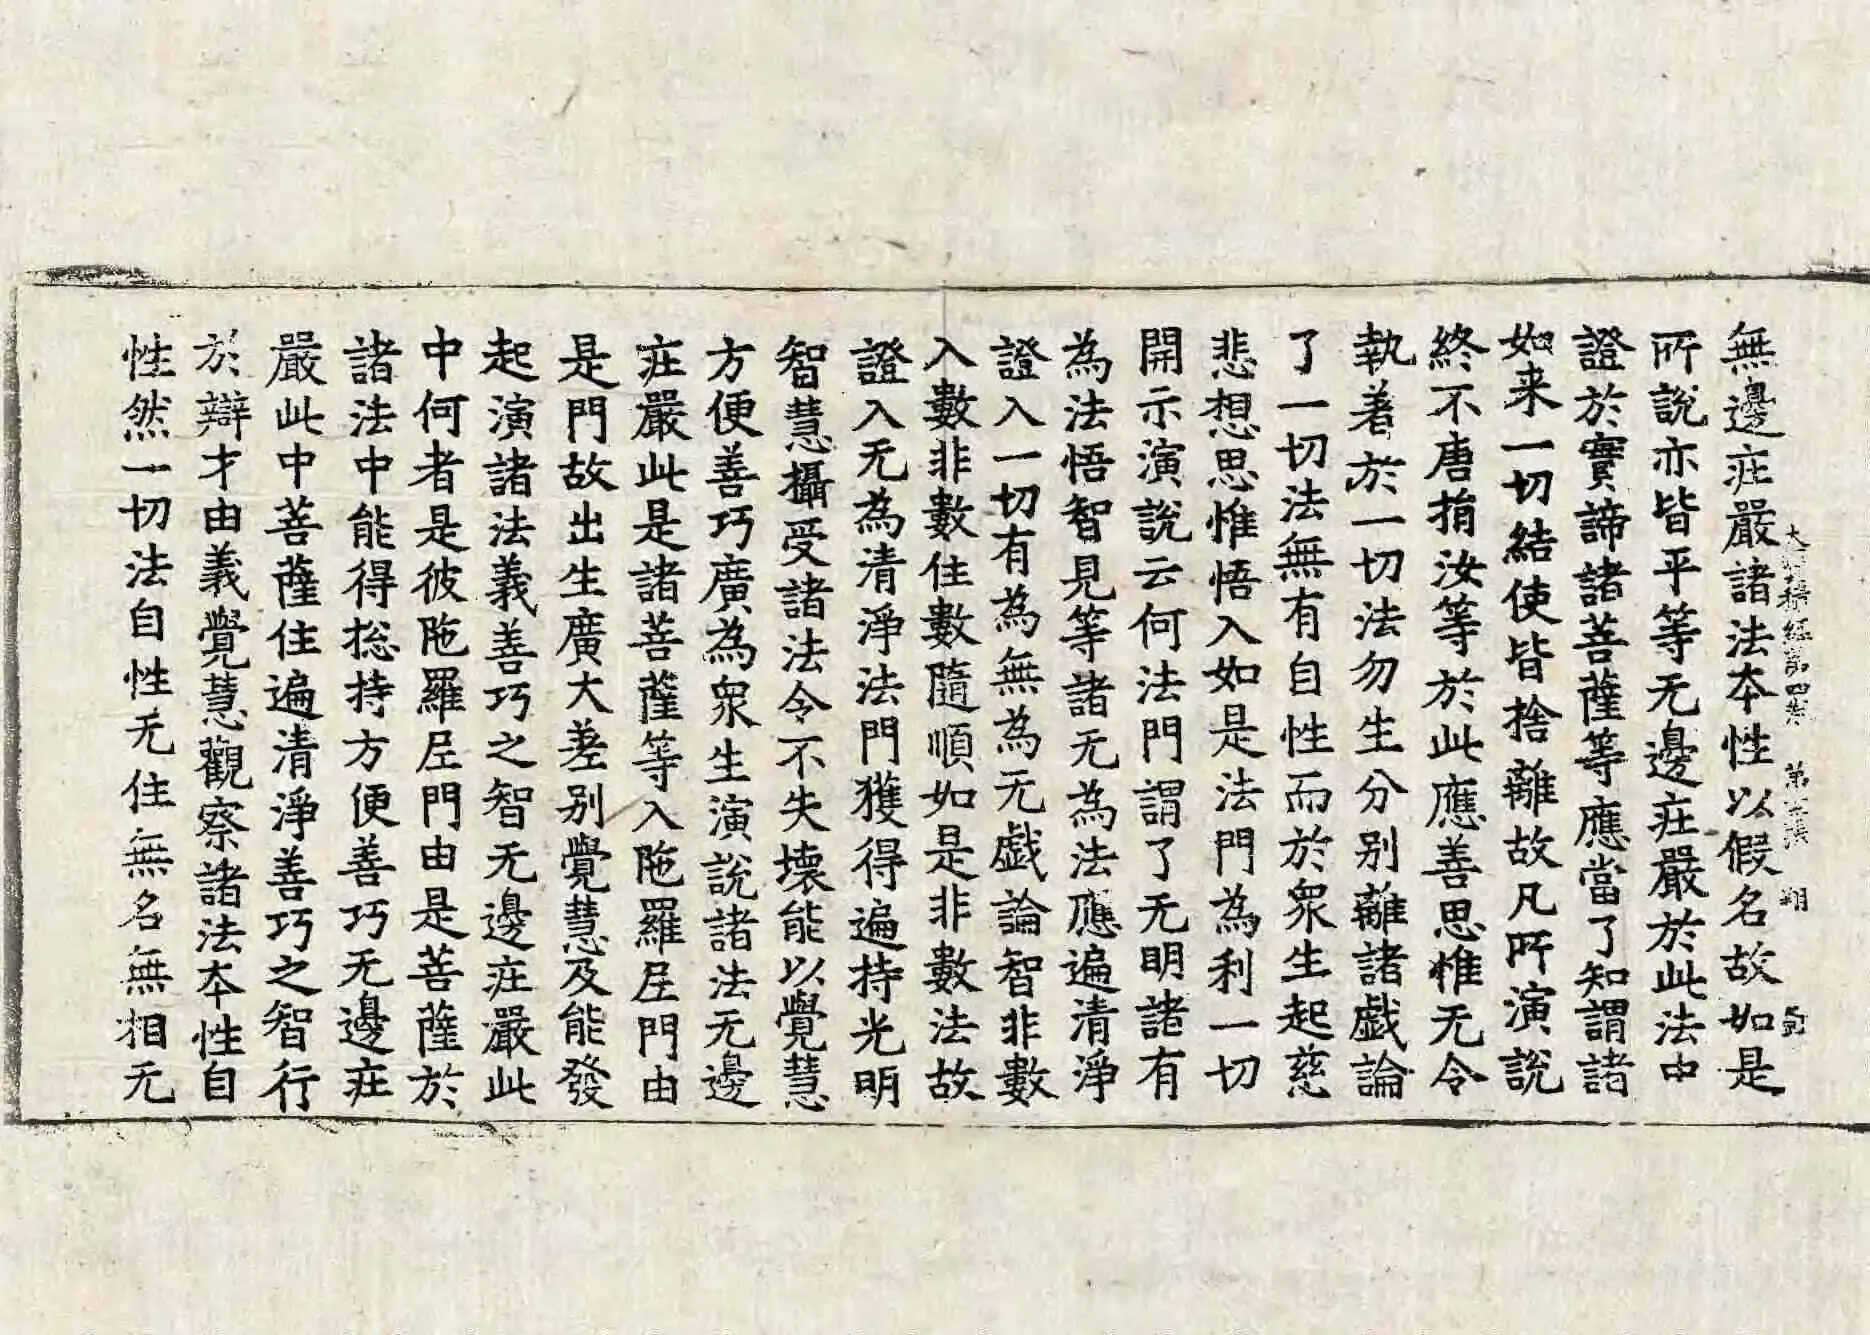 無邊疘嚴諸法夲性以假名故如是
所說亦皆平等无邊疘嚴於此法中
證於實諦諸菩薩等應當了知謂諸
如来一切結使皆捨離故凡所演說
終不唐捐汝等於此應善思惟无令
執着於一切法勿生分别離諸戯論
了一切法無有自性而於衆生起慈
悲想思惟悟入如是法門為利一切
開示演說云何法門謂了无明諸有
為法悟智見等諸无為法應遍清淨
證入一切有為無為无戯論智非數
入數非數住數隨順如是非數法故
證入无為清淨法門獲得遍持光明
智慧攝受諸法令不失壊能以覺慧
方便善巧廣為衆生演說諸法无邊
疘嚴此是諸菩薩等入陁羅𡰱門由
是門故出生廣大差别覺慧及能發
起演諸法義善巧之智无邊疘嚴此
中何者是彼陁羅𡰱門由是菩薩於
諸法中能得捴持方便善巧无邊疘
嚴此中菩薩住遍清淨善巧之智行
於辯才由義覺慧觀察諸法夲性自
性然一切法自性无住無名無相无